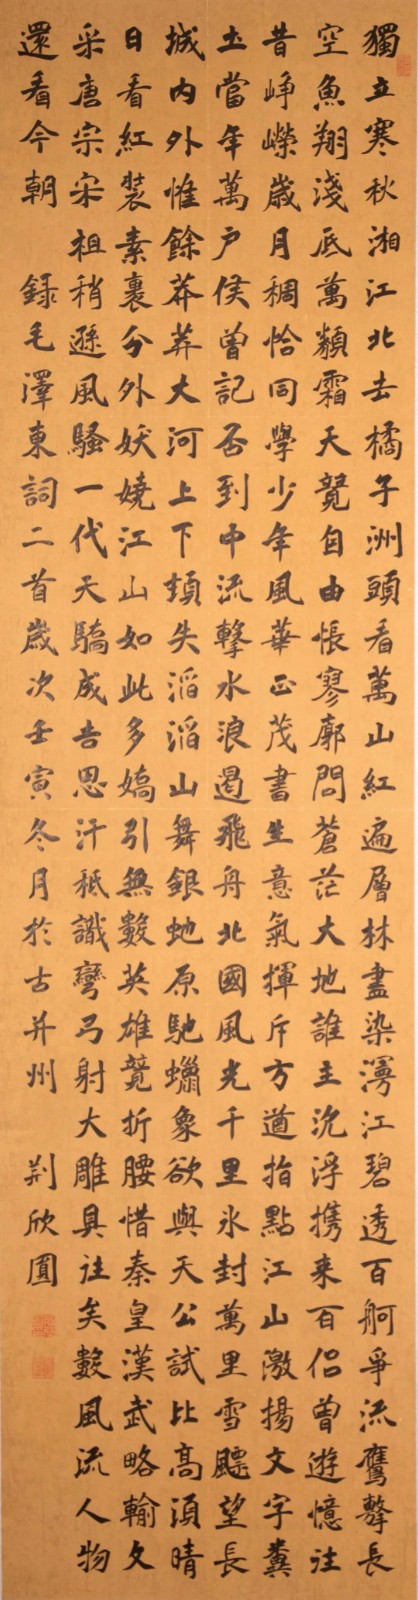 獨立寒秋湘江北去橘子洲頭看萬山紅遍層林盡染漫江碧透百舸爭流鷹擊長
空魚翔淺底萬類霜天競自由悵寥廓問蒼茫大地誰主沉浮携来百侣曾遊憶往
昔崢嶸歲月稠恰同學少年風華正茂書生意氣揮斥方遒指點江山激揚文字糞
土當年萬户侯曾記否到中流擊水浪遏飛舟北國風光千里氷封萬里雪飄望長
城内外惟餘莽莽大河上下頓失滔滔山舞銀虵原馳蠟象欲與天公試比高須晴
日看紅裝素裹分外妖嬈江山如此多嬌引無數英雄競折腰惜秦皇漢武略輸文
采唐宗宋祖稍遜風騷一代天驕成吉思汗秖識彎弓射大雕具往矣數風流人物
還看今朝 録毛澤東詞二首歲次壬寅冬月於古并州 荆欣圓